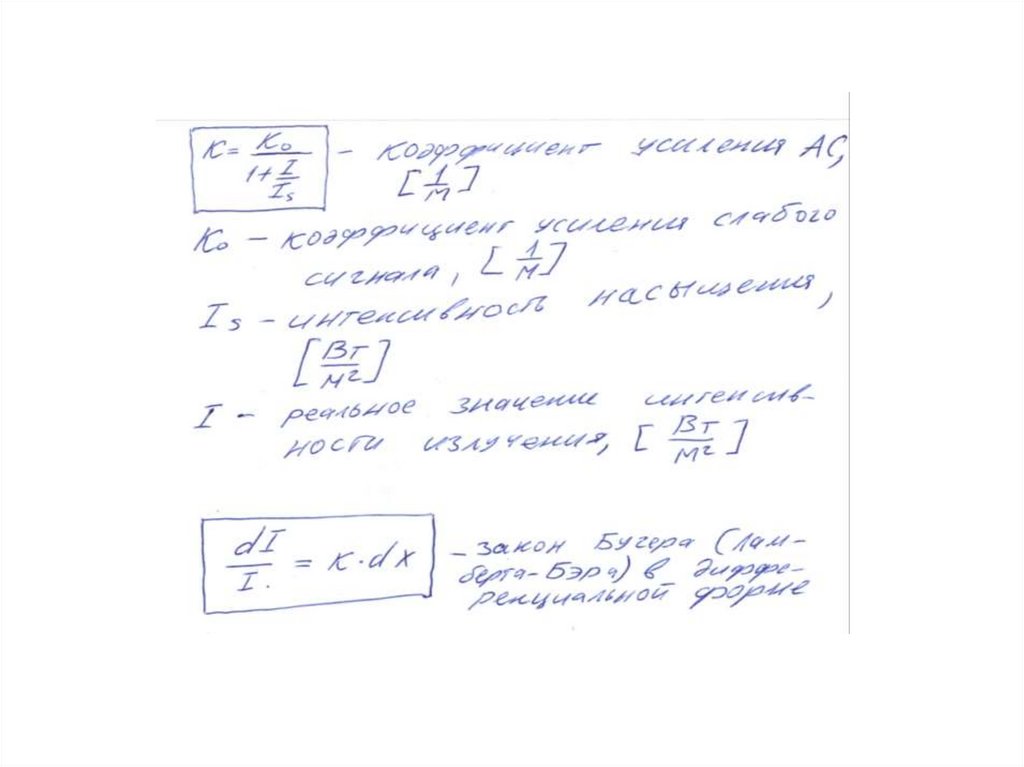 K = K₀ / (1 + I/Iₛ) – коэффициент усиления АС,
[1/м]
K₀ – коэффициент усиления слабого
сигнала, [1/м]
Iₛ – интенсивность насыщения,
[Вт/м²]
I – реальное значение интенсив-
ности излучения, [Вт/м²]
dI/I = K·dx – закон Бугера (Лам-
берта-Бэра) в диффе-
ренциальной форме